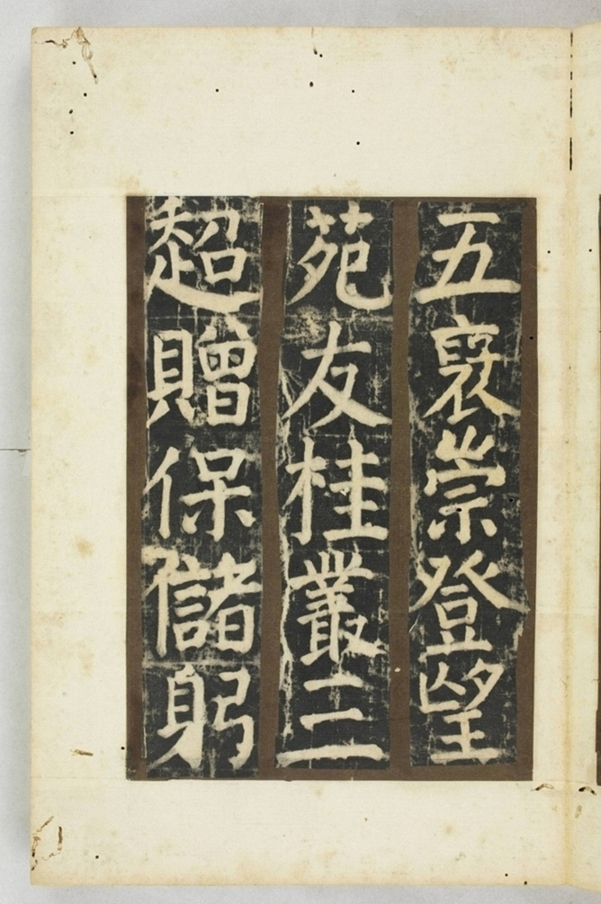 五裦崇登望
苑友桂叢三
超贈保儲躬